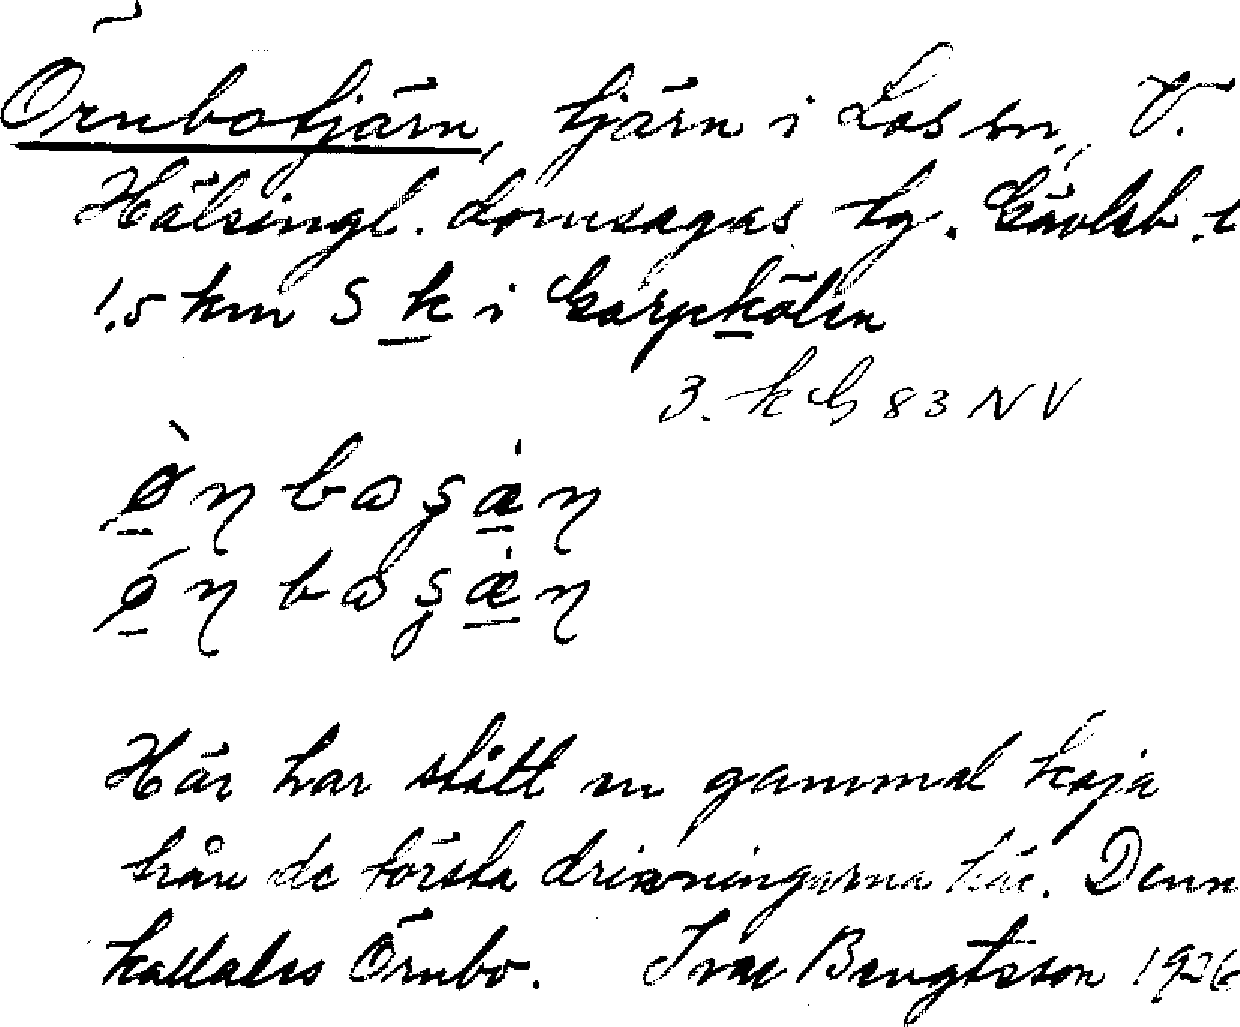 Örnbotjärn, tjärn i Los sn, V.
Hälsingl. domsagas tg. Gävleb. l
1,5 km S k i Garpkölen
3. k G 83 NV
Här har stått en gammal koja
från de första drivningarna här. Denn
kallades Örnbo. Ivar Bengtsson 1926